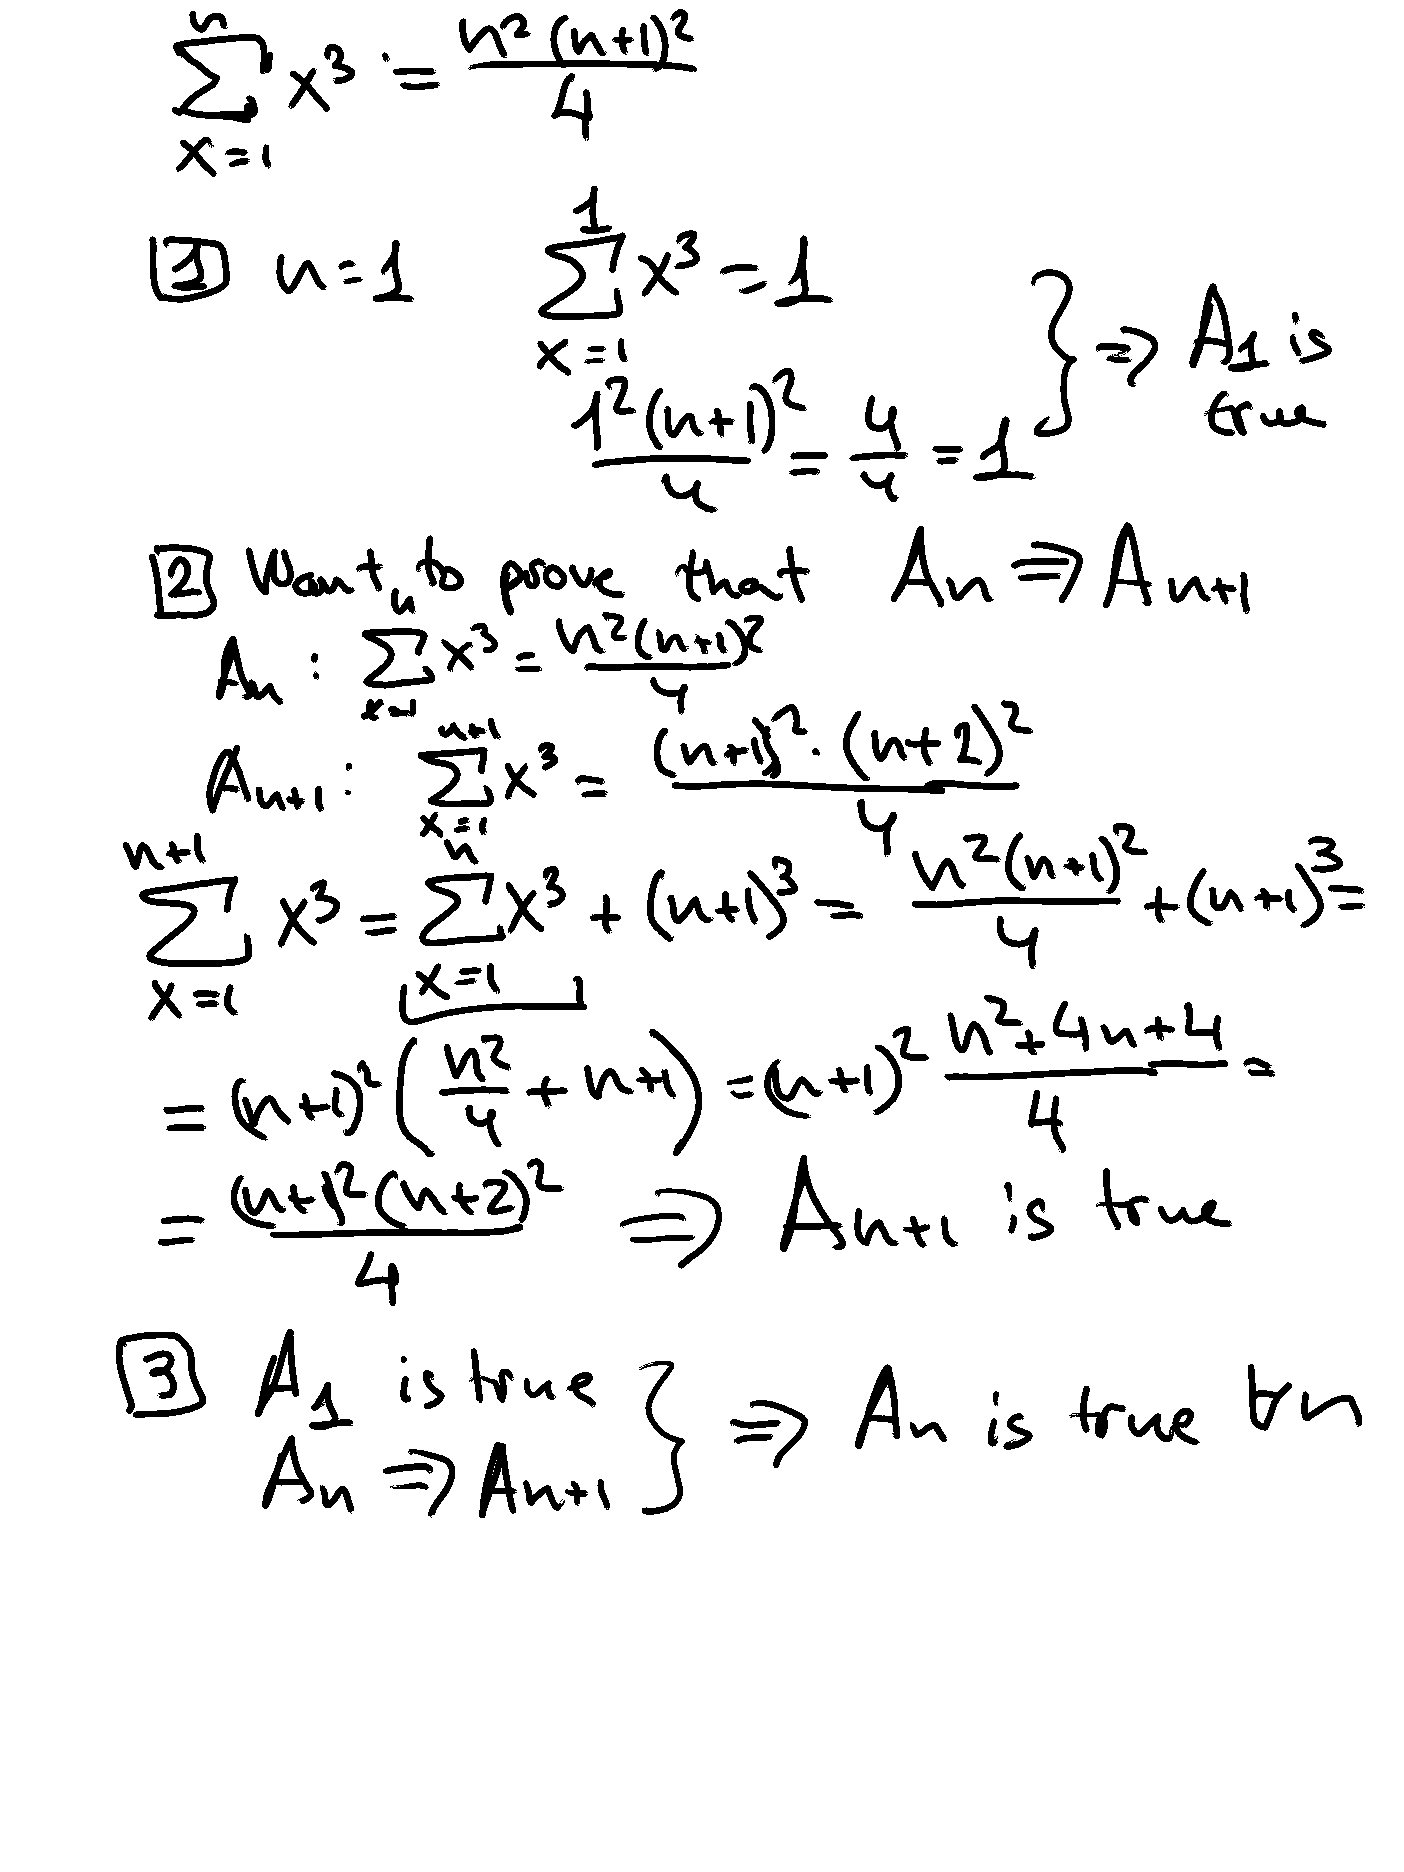 \sum_{x=1}^{n} x^3 = \frac{n^2(n+1)^2}{4}
[1] n=1 \sum_{x=1}^{1} x^3 = 1
\frac{1^2(n+1)^2}{4} = \frac{4}{4} = 1 } ⇒ A_1 is true
[2] Want to prove that A_n ⇒ A_{n+1}
A_n : \sum_{x=1}^{n} x^3 = \frac{n^2(n+1)^2}{4}
A_{n+1} : \sum_{x=1}^{n+1} x^3 = \frac{(n+1)^2 · (n+2)^2}{4}
\sum_{x=1}^{n+1} x^3 = \sum_{x=1}^{n} x^3 + (n+1)^3 = \frac{n^2(n+1)^2}{4} + (n+1)^3 =
= (n+1)^2 (\frac{n^2}{4} + n+1) = (n+1)^2 \frac{n^2+4n+4}{4} =
= \frac{(n+1)^2(n+2)^2}{4} ⇒ A_{n+1} is true
[3] A_1 is true
A_n ⇒ A_{n+1} } ⇒ A_n is true ∀n